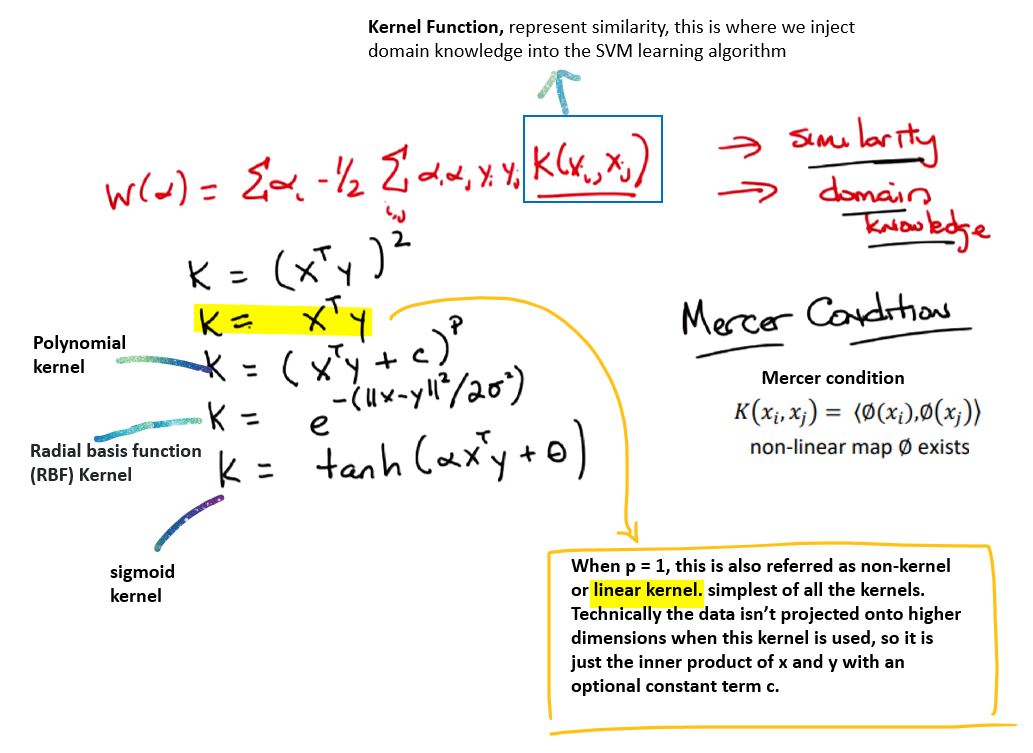 Kernel Function, represent similarity, this is where we inject
domain knowledge into the SVM learning algorithm
W(α) = Σαᵢ - 1/2 Σᵢ,ⱼ αᵢαⱼ yᵢ yⱼ K(xᵢ, xⱼ)
→ similarity
→ domain
knowledge
K = (xᵀy)²
K = xᵀy
K = (xᵀy + c)ᵖ
K = e^-(||x-y||²/2σ²)
K = tanh(αxᵀy + θ)
Polynomial
kernel
Radial basis function
(RBF) Kernel
sigmoid
kernel
Mercer Condition
Mercer condition
K(xᵢ, xⱼ) = ⟨Ø(xᵢ),Ø(xⱼ)⟩
non-linear map Ø exists
When p = 1, this is also referred as non-kernel
or linear kernel. simplest of all the kernels.
Technically the data isn’t projected onto higher
dimensions when this kernel is used, so it is
just the inner product of x and y with an
optional constant term c.